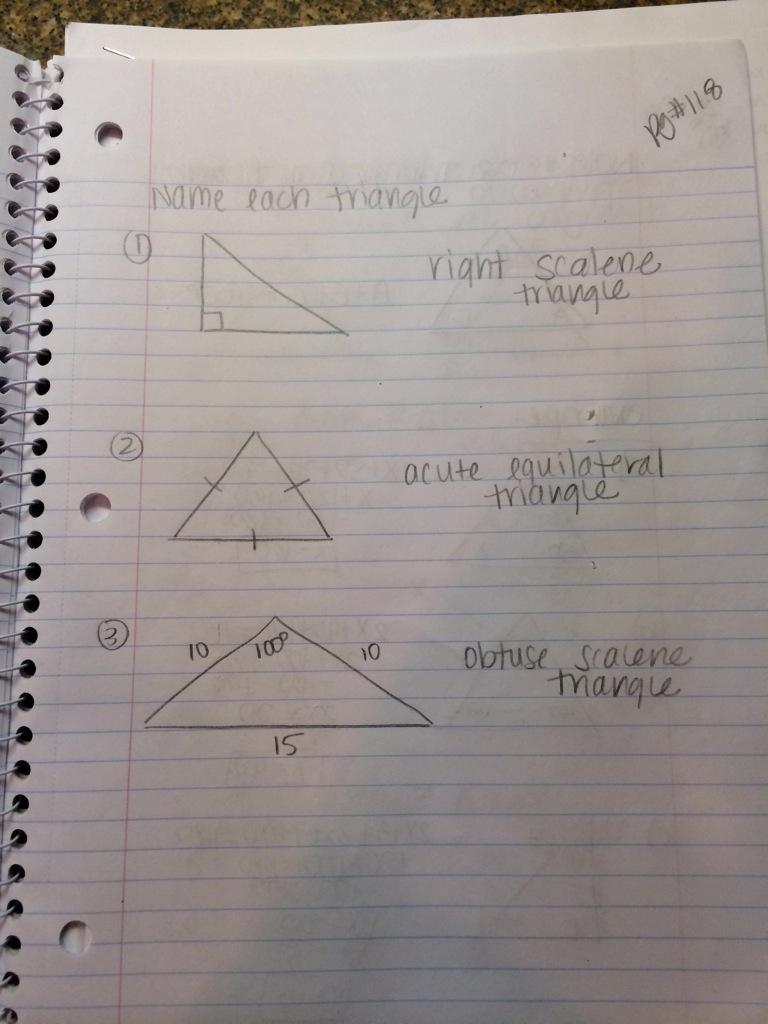 pg#118
Name each triangle
①
right scalene
triangle
②
acute equilateral
triangle
③
10 100° 10
15
obtuse scalene
triangle